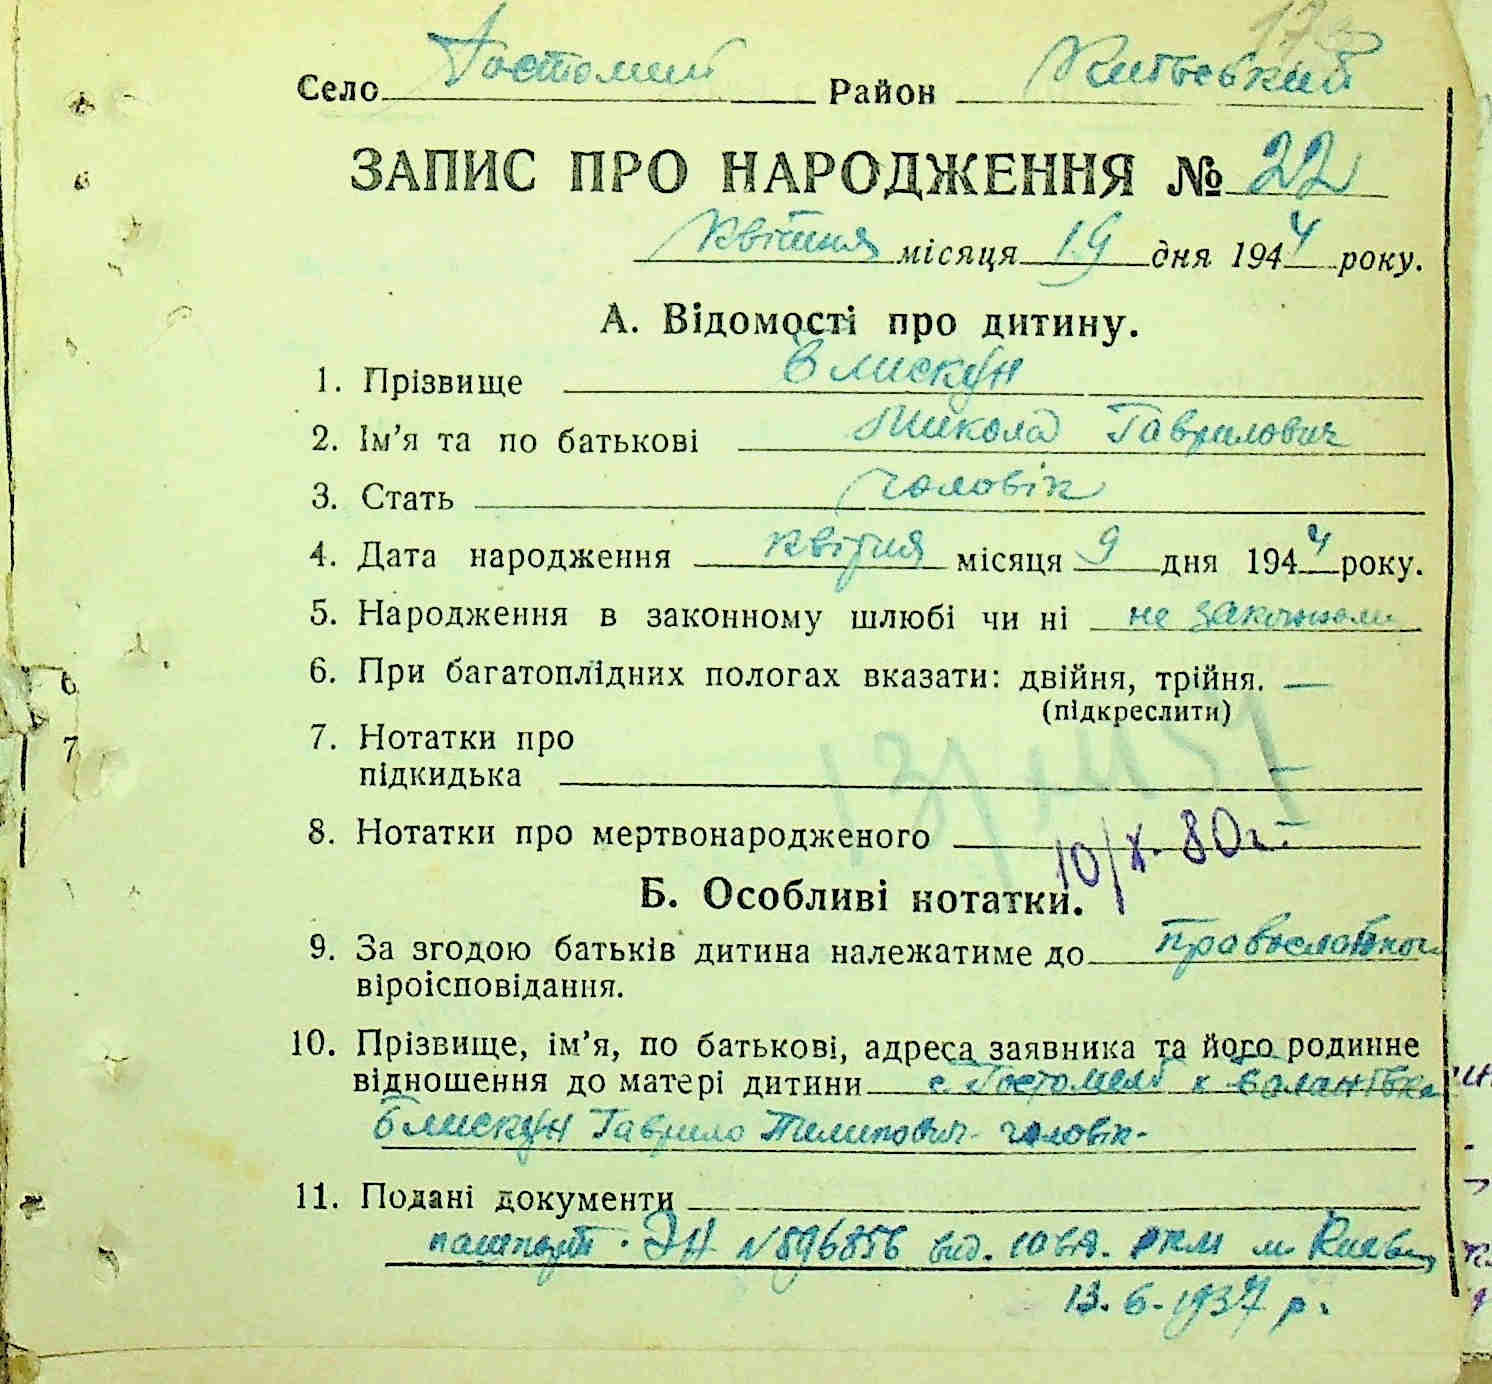 Село Гостомель Район Київський
ЗАПИС ПРО НАРОДЖЕННЯ № 22
квітня місяця 19 дня 1944 року.
А. Відомості про дитину.
1. Прізвище Блискун
2. Ім'я та по батькові Микола Гаврилович
3. Стать чоловік
4. Дата народження квітня місяця 9 дня 1944 року.
5. Народження в законному шлюбі чи ні не законном
6. При багатоплідних пологах вказати: двійня, трійня. —
(підкреслити)
7. Нотатки про
підкидька —
8. Нотатки про мертвонародженого —
10/X-80г.
Б. Особливі нотатки.
9. За згодою батьків дитина належатиме до православного
віроісповідання.
10. Прізвище, ім'я, по батькові, адреса заявника та його родинне
відношення до матері дитини с. Гостомель х
Блискун Гаврило Пилипович - чоловік -
11. Подані документи
пашпорт. ЭН N 596856 вид. 10 від. РКМ м. Києва
13.6.1937 р.
6
7